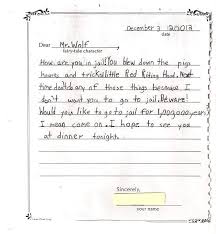 December 3 12/10/12
date
Dear Mr. Wolf
fairy-tale character
How are you in jail. You blew down the pigs
houses and tricked little Red Riding Hood. Next
time don't do any of those things because I
don't want you to go to jail. Beware!
Would you like to go to jail for 1,000,000 years
I mean come on. I hope to see you
at dinner tonight.
Sincerely,
your name